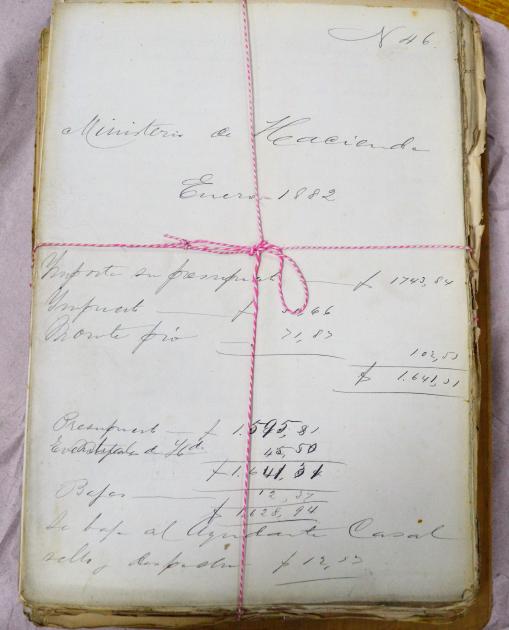 N 46.
Ministerio de Hacienda
Enero 1882
Importa su presupuesto — $ 1743,84
Impuesto — $ ,66
Monte pio 71,87
102,53
$ 1.641,31
Presupuesto — $ 1.595,81
de Hda 45,50
$ 1.641,31
Bajas — 12,37
$ 1.628,94
Se baja al Ayudante Casal
sello y $ 12,37